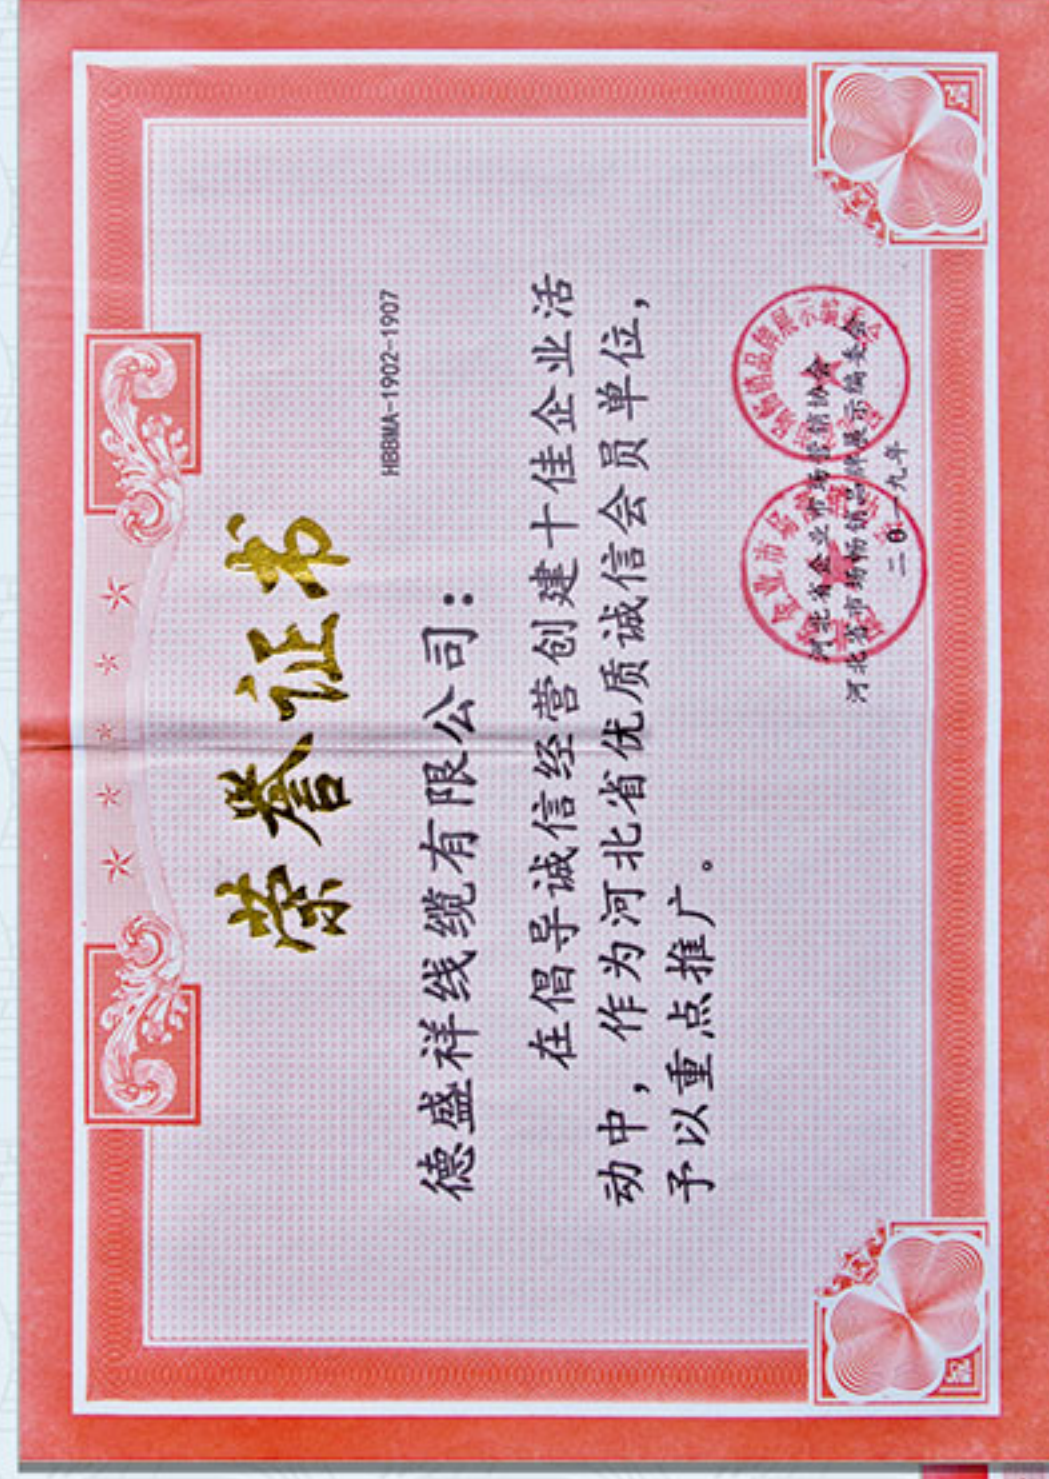 荣誉证书
HBBMA-1902-1907
德盛祥线缆有限公司：
在倡导诚信经营创建十佳企业活
动中，作为河北省优质诚信会员单位，
予以重点推广。
河北省企业市场营销协会
河北省市场畅销品牌展示编委会
二0一九年